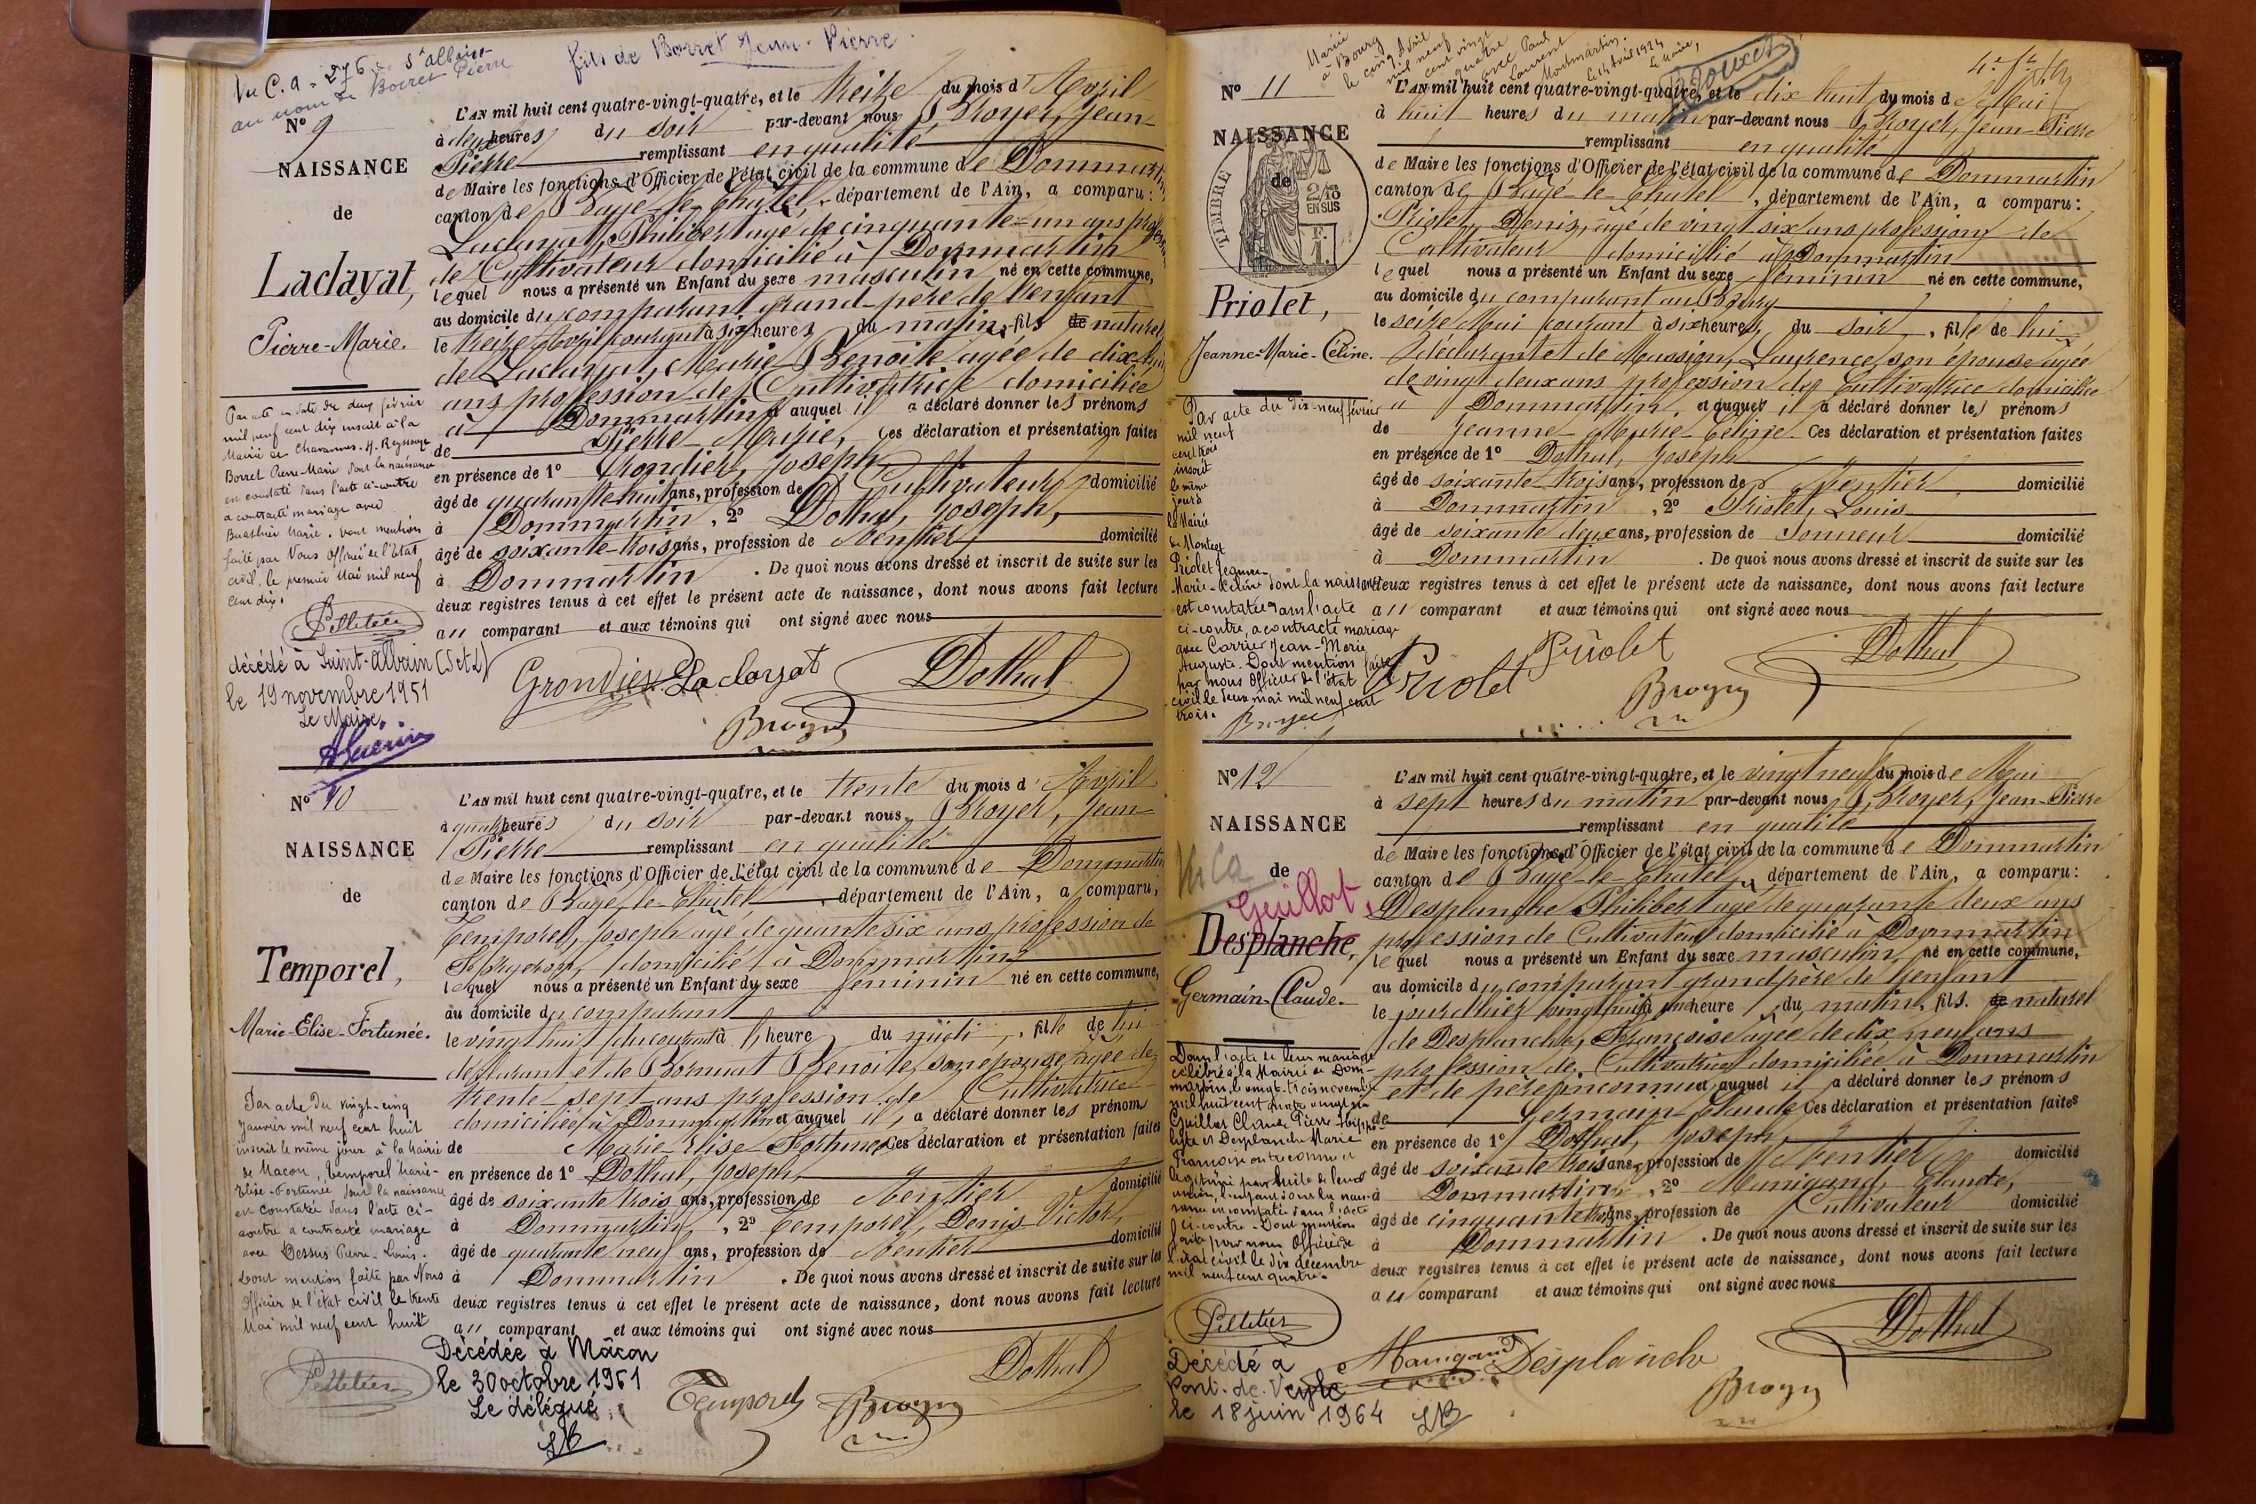 Vu C.a. 276 St albain
au nom de Borret Pierre
fils de Borret Jean-Pierre.
N° 9
NAISSANCE
de
Laclayat,
Pierre-Marie.
Par acte en date du deux février
mil neuf cent dix inscrit à la
Mairie de Chavannes s. Reyssouze
Borret Pierre-Marie dont la naissance
est constatée dans l'acte ci-contre
a contracté mariage avec
Marie. Dont mention
faite par Nous Officier de l'Etat
civil, le premier Mai mil neuf
cent dix.
Pelletier
décédé à Saint-Albain (S et L)
le 19 novembre 1951
Le Maire,
L'AN mil huit cent quatre-vingt-quatre, et le treize du mois d'Avril
à deux heures du soir par-devant nous Broyer, Jean-
Pierre remplissant en qualité
de Maire les fonctions d'Officier de l'état civil de la commune de Dommartin
canton de Bagé-le-Châtel, département de l'Ain, a comparu:
Laclayat, Philibert agé de cinquante-un ans profession
de Cultivateur domicilié à Dommartin
lequel nous a présenté un Enfant du sexe masculin né en cette commune,
au domicile du comparant grand-père de l'enfant
le treize Avril courant à six heures du matin, fils de naturel
de Laclayat, Marie Benoite agée de dix-huit
ans profession de Cultivatrice domiciliée
à Dommartin et auquel il a déclaré donner les prénoms
de Pierre-Marie, Ces déclaration et présentation faites
en présence de 1° Grondier, Joseph
âgé de quarante huit ans, profession de Cultivateur domicilié
à Dommartin, 2° Dothal, Joseph,
âgé de soixante-trois ans, profession de Rentier domicilié
à Dommartin. De quoi nous avons dressé et inscrit de suite sur les
deux registres tenus à cet effet le présent acte de naissance, dont nous avons fait lecture
au comparant et aux témoins qui ont signé avec nous
Grondier Laclayat Dothal
Broyer
N° 10
NAISSANCE
de
Temporel,
Marie-Elise-Fortunée.
Par acte du vingt-cinq
Janvier mil neuf cent huit
inscrit le même jour à la Mairie
de Macon, Temporel Marie-
Elise-Fortunée dont la naissance
est constatée dans l'acte ci-
contre a contracté mariage
avec Dessus Pierre-Louis.
Dont mention faite par Nous
Officier de l'état civil le trente
Mai mil neuf cent huit
Pelletier
L'AN mil huit cent quatre-vingt-quatre, et le trente du mois d'Avril
à quatre heures du soir par-devant nous Broyer, Jean-
Pierre remplissant en qualité
de Maire les fonctions d'Officier de l'état civil de la commune de Dommartin
canton de Bagé-le-Châtel, département de l'Ain, a comparu:
Temporel, Joseph agé de quante six ans profession de
Forgeron, domicilié à Dommartin
lequel nous a présenté un Enfant du sexe féminin né en cette commune,
au domicile du comparant
le vingt huit du courant à heure du midi, fille de lui
déclarant et de Bormat Benoite, son épouse agée de
trente-sept ans profession de Cultivatrice
domiciliée à Dommartin et auquel il, a déclaré donner les prénoms
de Marie-Elise Fortunée Ces déclaration et présentation faites
en présence de 1° Dothal, Joseph,
âgé de soixante trois ans, profession de Rentier domicilié
à Dommartin, 2° Temporel, Denis-Victor,
âgé de quarante neuf ans, profession de Rentier domicilié
à Dommartin. De quoi nous avons dressé et inscrit de suite sur les
deux registres tenus à cet effet le présent acte de naissance, dont nous avons fait lecture
au comparant et aux témoins qui ont signé avec nous
Décédée à Mâcon
le 30 octobre 1961
Le délégué
Temporel Broyer Dothal
Marié
à Bourg
le cinq Avril
mil neuf
cent vingt
quatre
avec Paul
Laurent
Montmartin.
Le Maire,
4e fe
N° 11
NAISSANCE
de
TIMBRE
2/10
EN SUS
Priolet,
Jeanne-Marie-Céline.
Par acte du dix-neuf février
mil neuf
cent trois
inscrit
le même
jour à
la Mairie
de Montcet
Priolet Jeanne-
Marie-Céline dont la naissance
est constatée dans l'acte
ci-contre, a contracté mariage
avec Carrier Jean-Marie
Auguste. Dont mention faite
par nous Officier de l'état
civil le deux mai mil neuf cent
trois.
Broyer
L'AN mil huit cent quatre-vingt-quatre, et le dix huit du mois de Mai
à huit heures du matin par-devant nous Broyer, Jean-Pierre
remplissant en qualité
de Maire les fonctions d'Officier de l'état civil de la commune de Dommartin
canton de Bagé-le-Châtel, département de l'Ain, a comparu:
Priolet, Denis, agé de vingt six ans profession de
Cultivateur domicilié à Dommartin
lequel nous a présenté un Enfant du sexe féminin né en cette commune,
au domicile du comparant au Bourg
le seize Mai courant à six heures du soir, fille de lui
déclarant et de Massign, Laurence son épouse agée
de vingt deux ans profession de Cultivatrice domiciliée
à Dommartin, et auquel il a déclaré donner les prénoms
de Jeanne-Marie-Céline. Ces déclaration et présentation faites
en présence de 1° Dothal, Joseph
âgé de soixante trois ans, profession de Rentier domicilié
à Dommartin, 2° Priolet, Louis
âgé de soixante deux ans, profession de Sonneur domicilié
à Dommartin. De quoi nous avons dressé et inscrit de suite sur les
deux registres tenus à cet effet le présent acte de naissance, dont nous avons fait lecture
au comparant et aux témoins qui ont signé avec nous
Priolet Priolet Broyer Dothal
N° 12
NAISSANCE
de
Guillot,
Desplanche,
Germain-Claude.
Dans l'acte de leur mariage
célébré à la Mairie de Dom-
martin, le vingt-trois novembre
mil huit cent quatre vingt six
Guillot Claude Pierre-Hippo-
lyte et Desplanche Marie
Françoise ont reconnu et
légitimé par suite de leur
union, l'enfant dont la nais-
sance est constatée dans l'acte
ci-contre. Dont mention
faite par nous Officier de
l'état civil le dix décembre
mil neuf cent quatre.
Pelletier
Décédé à
Pont-de-Veyle
le 18 juin 1964
L'AN mil huit cent quatre-vingt-quatre, et le vingt neuf du mois de Mai
à sept heures du matin par-devant nous Broyer, Jean-Pierre
remplissant en qualité
de Maire les fonctions d'Officier de l'état civil de la commune de Dommartin
canton de Bagé-le-Châtel, département de l'Ain, a comparu:
Desplanche Philibert agé de quarante deux ans
profession de Cultivateur domicilié à Dommartin
lequel nous a présenté un Enfant du sexe masculin, né en cette commune,
au domicile du comparant grand père de l'enfant
le jour d'hier vingt huit à une heure du matin, fils. de naturel
de Desplanche, Françoise agée de dix neuf ans
profession de Cultivatrice domiciliée à Dommartin
et de père inconnu et auquel il a déclaré donner les prénoms
de Germain-Claude Ces déclaration et présentation faites
en présence de 1° Dothal, Joseph,
âgé de soixante trois ans, profession de Rentier domicilié
à Dommartin, 2° Manigand, Claude,
âgé de cinquante trois ans, profession de Cultivateur domicilié
à Dommartin. De quoi nous avons dressé et inscrit de suite sur les
deux registres tenus à cet effet le présent acte de naissance, dont nous avons fait lecture
au comparant et aux témoins qui ont signé avec nous
Manigand Desplanche Dothal
Broyer